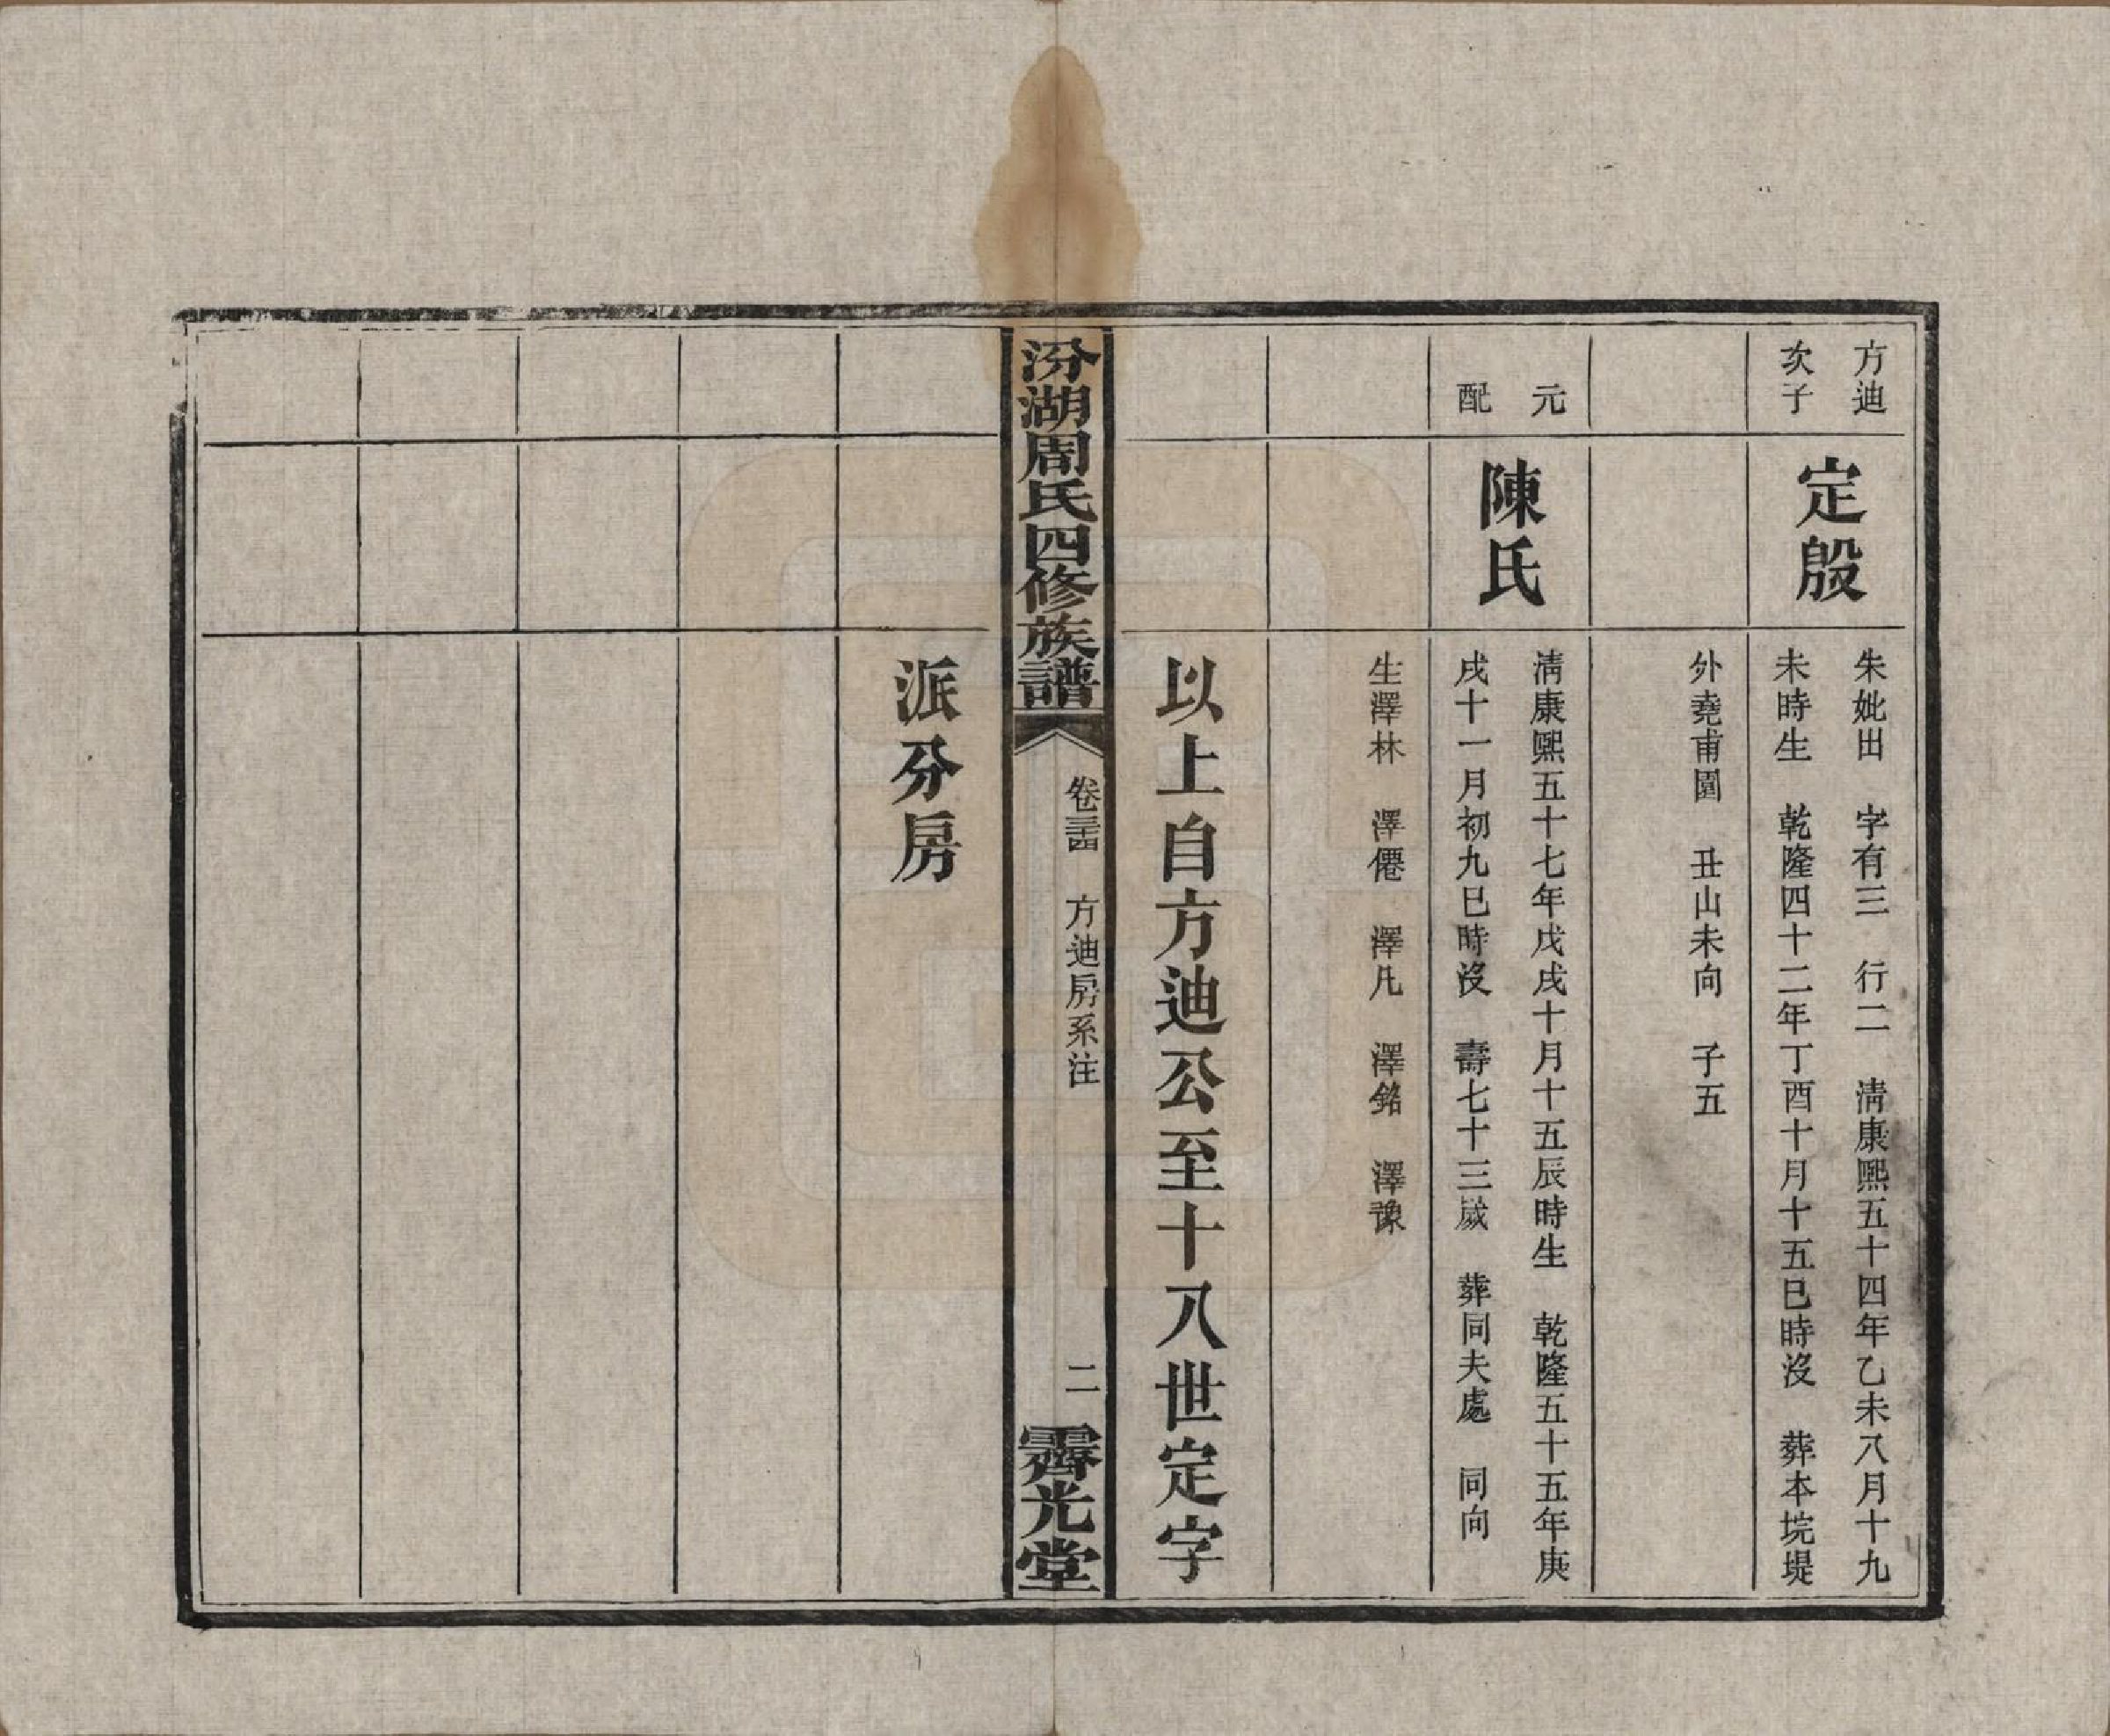 方迪
次子
定殷
朱妣出 字有三 行二 清康熙五十四年乙未八月十九
未時生 乾隆四十二年丁酉十月十五巳時沒 葬本垸堤
外堯甫園 丑山未向 子五
元
配
陳氏
清康熙五十七年戊戌十月十五辰時生 乾隆五十五年庚
戌十一月初九巳時沒 壽七十三歲 葬同夫處 同向
生澤林 澤僊 澤凡 澤銘 澤豫
以上自方迪公至十八世定字
汾湖周氏四修族譜
卷三四 方迪房系注
二
霽光堂
派分房